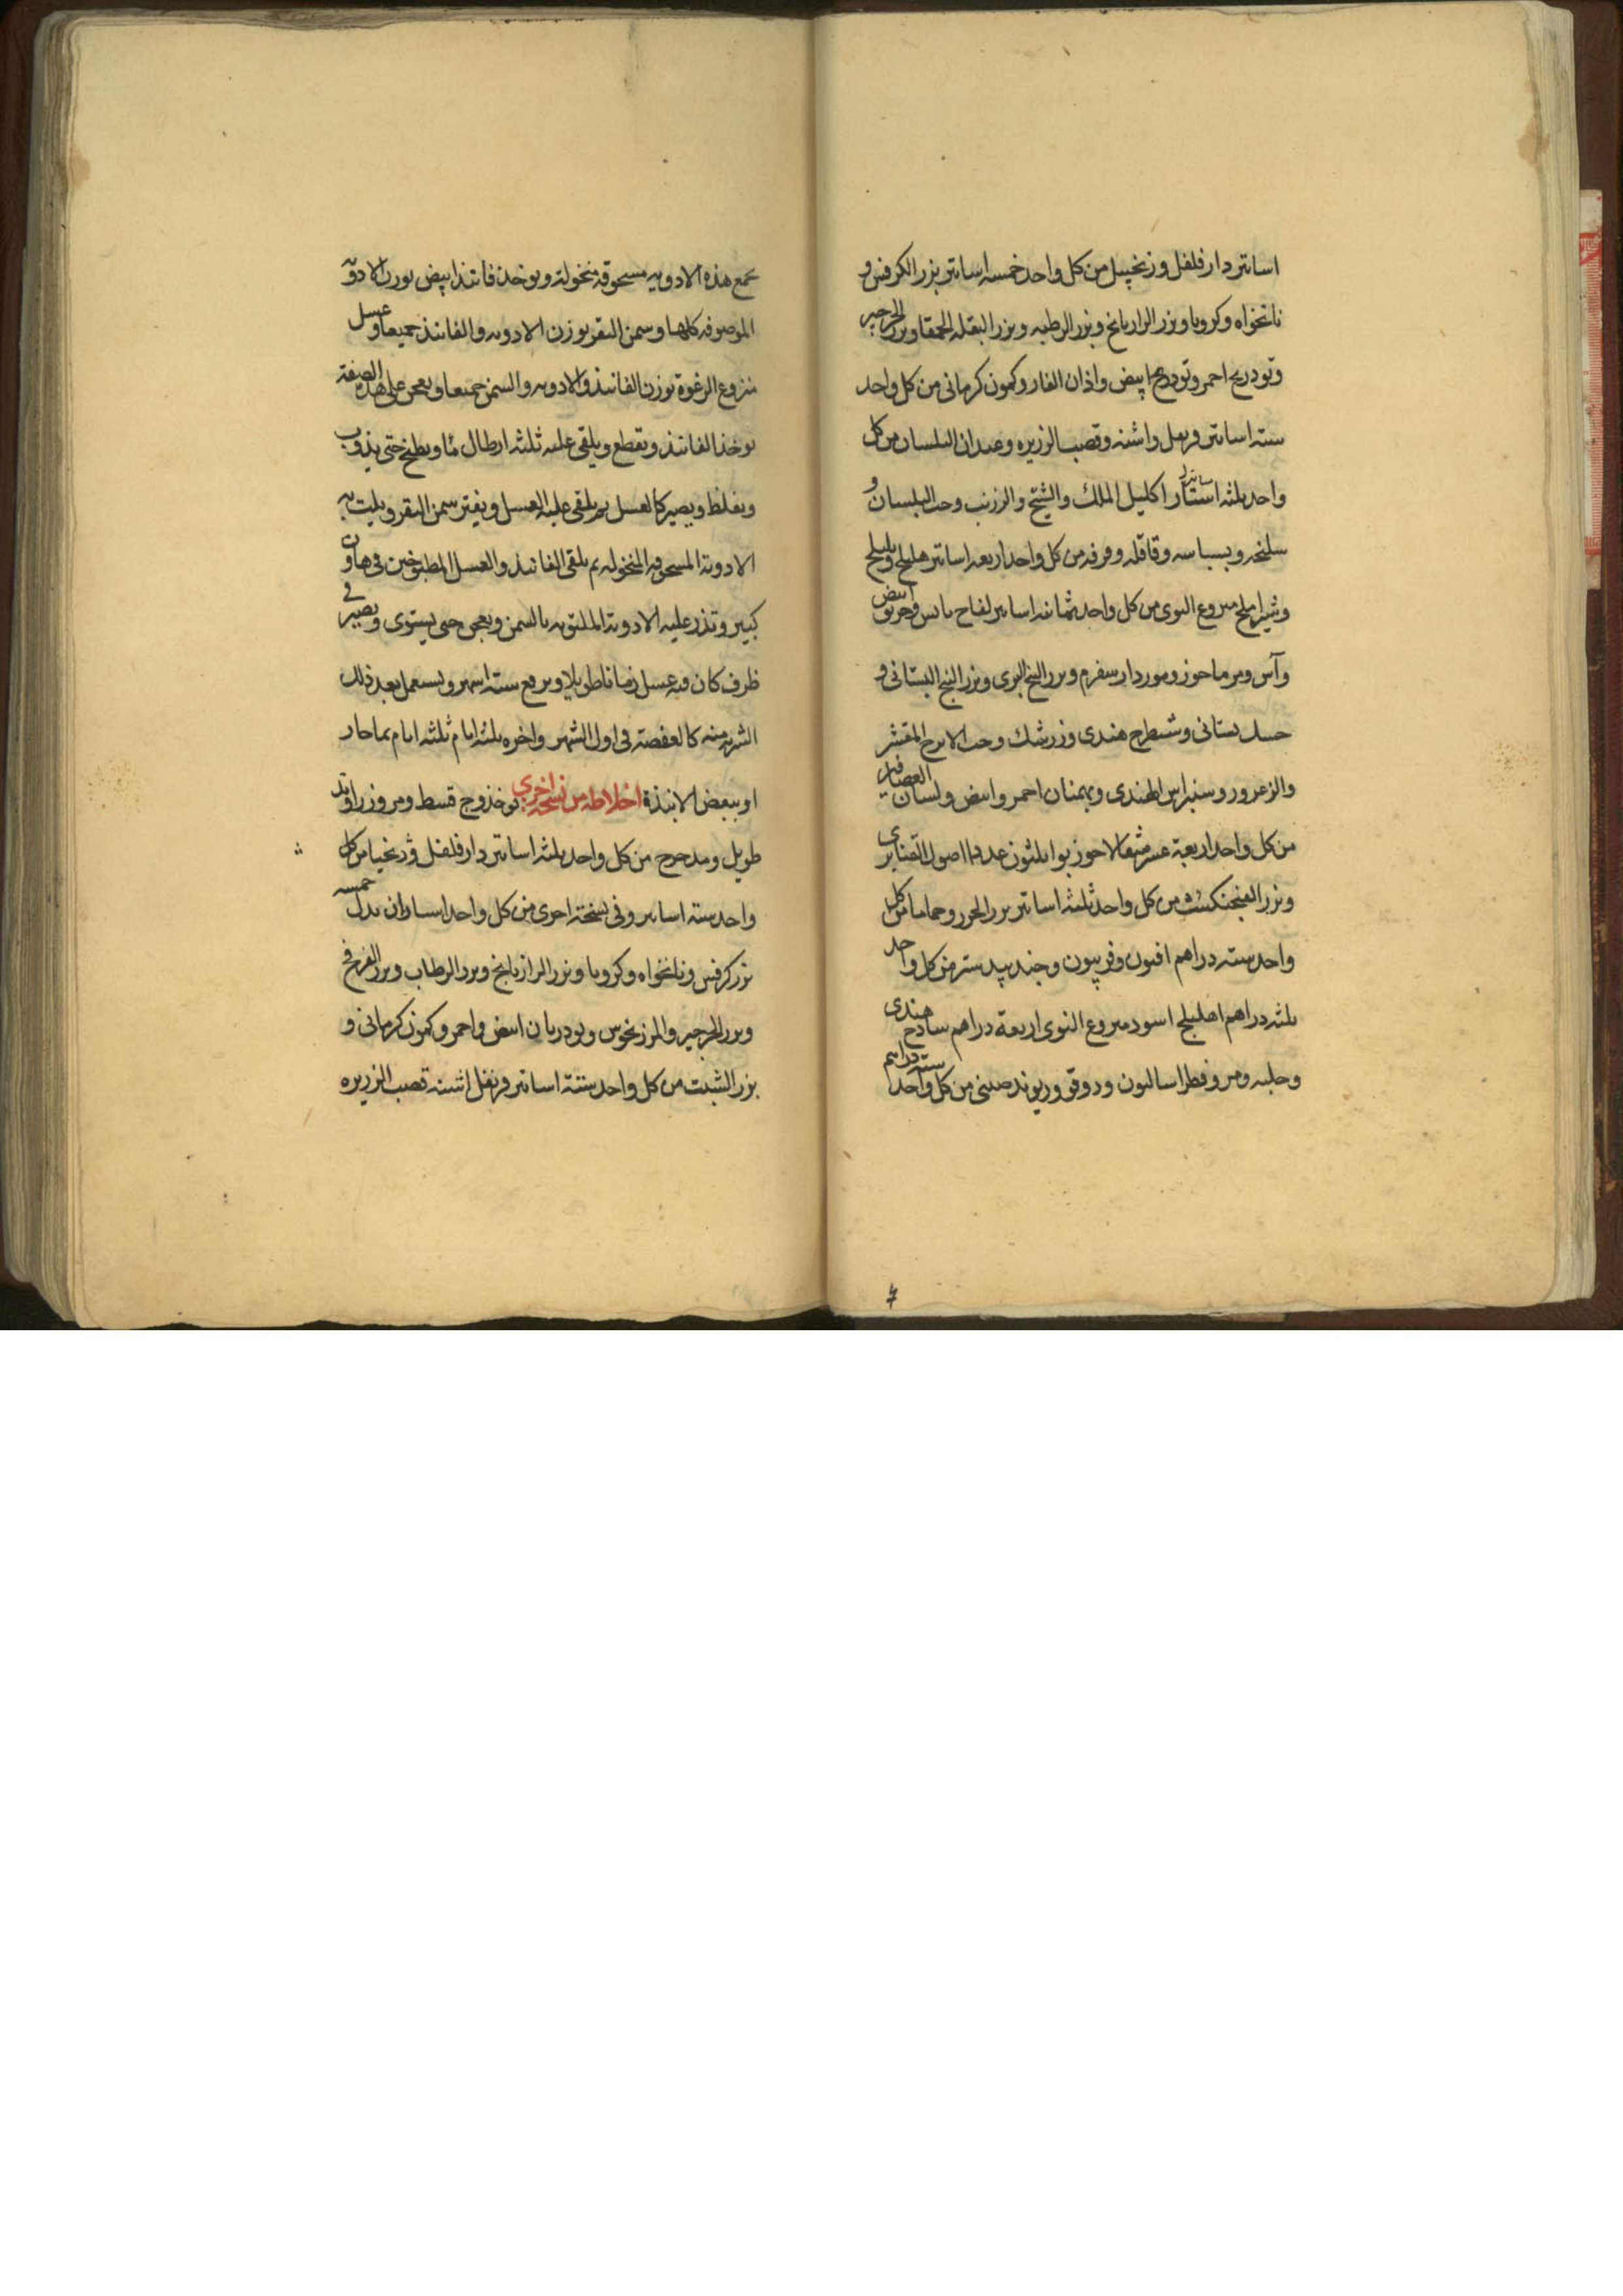 اساتير دار فلفل وزنجبيل من كل واحد خمسه اساتير بزر الكرفس و
نانخواه وكرويا وبزر الرازيانج وبزر الرطبه وبزر البقله الحمقا وبزر الجرجير
وتودريج احمر وتودريج ابيض واذان الفار وكمون كرمانى من كل واحد
سته اساتير قرنفل واشنه وقصب الذريره وعيدان البلسان من كل
واحد ثلثه استار اكليل الملك والشيح والزرنب وحب البلسان و
سليخه وبسباسه وقاقله وقرفه من كل واحد اربعه اساتير هليلج وبليلج
وشير املج منزوع النوى من كل واحد ثمانيه اساتير لفاح يابس وخربق ابيض
وآس ومرماحوز ومورداسفرم وبزر البنج البرى وبزر البنج البستانى و
حسك بستانى وشيطرج هندى وزرشك وحب الاترج المقشر
والزعرور وسنبراس الهندى وبهمنان احمر وابيض ولسان العصافير
من كل واحد اربعة عشر مثقالا جوز بوا ثلثون عددا اصول القنابرى
وبزر الفنجنكشت من كل واحد ثلثه اساتير بزر الجزر وحماما من كل
واحد سته دراهم افيون وفربيون وجندبيدستر من كل واحد
ثلثه دراهم اهليلج اسود منزوع النوى اربعة دراهم ساذج هندى
وحلبه ومر وفطراساليون ودوقو وريوند صينى من كل واحد سته دراهم
تجمع هذه الادويه مسحوقه منخولة ويوخذ فانيذ ابيض بوزن الادويه
الموصوفه كلها وسمن البقر بوزن الادويه والفانيذ جميعا وعسل
منزوع الرغوة بوزن الفانيذ والادويه والسمن جميعا ويعجن على هذه الصفة
يوخذ الفانيذ ويقطع ويلقى عليه ثلثه ارطال ما ويطبخ حتى يذوب
ويغلظ ويصير كالعسل ثم يلقى عليه العسل ويفتر سمن البقر ويلت به
الادوية المسحوقه المنخوله ثم يلقى الفانيذ والعسل المطبوخين فى هاون
كبير وتذر عليه الادوية الملتوته بالسمن ويعجن حتى يستوى ويصير فى
ظرف كان فيه عسل زمانا طويلا ويرفع سته اشهر ويستعمل بعد ذلك
الشربه منه كالعفصة فى اول الشهر واخره ثلثه ايام ثلثه ايام بما حار
او ببعض الانبذة اخلاطه من نسخه اخرى يوخذ وج قسط ومر وزراوند
طويل ومدحرج من كل واحد ثلثه اساتير دار فلفل وزنجبيل من كل
واحد سته اساتير وفى نسخة اخرى من كل واحد استاران بدل خمسه
بزر كرفس ونانخواه وكرويا وبزر الرازيانج وبزر الرطاب وبزر الفرفخ
وبزر الجرجير والمرزنجوش وتودريان ابيض واحمر وكمون كرمانى و
بزر الشبت من كل واحد ستة اساتير قرنفل اشنه قصب الذريره